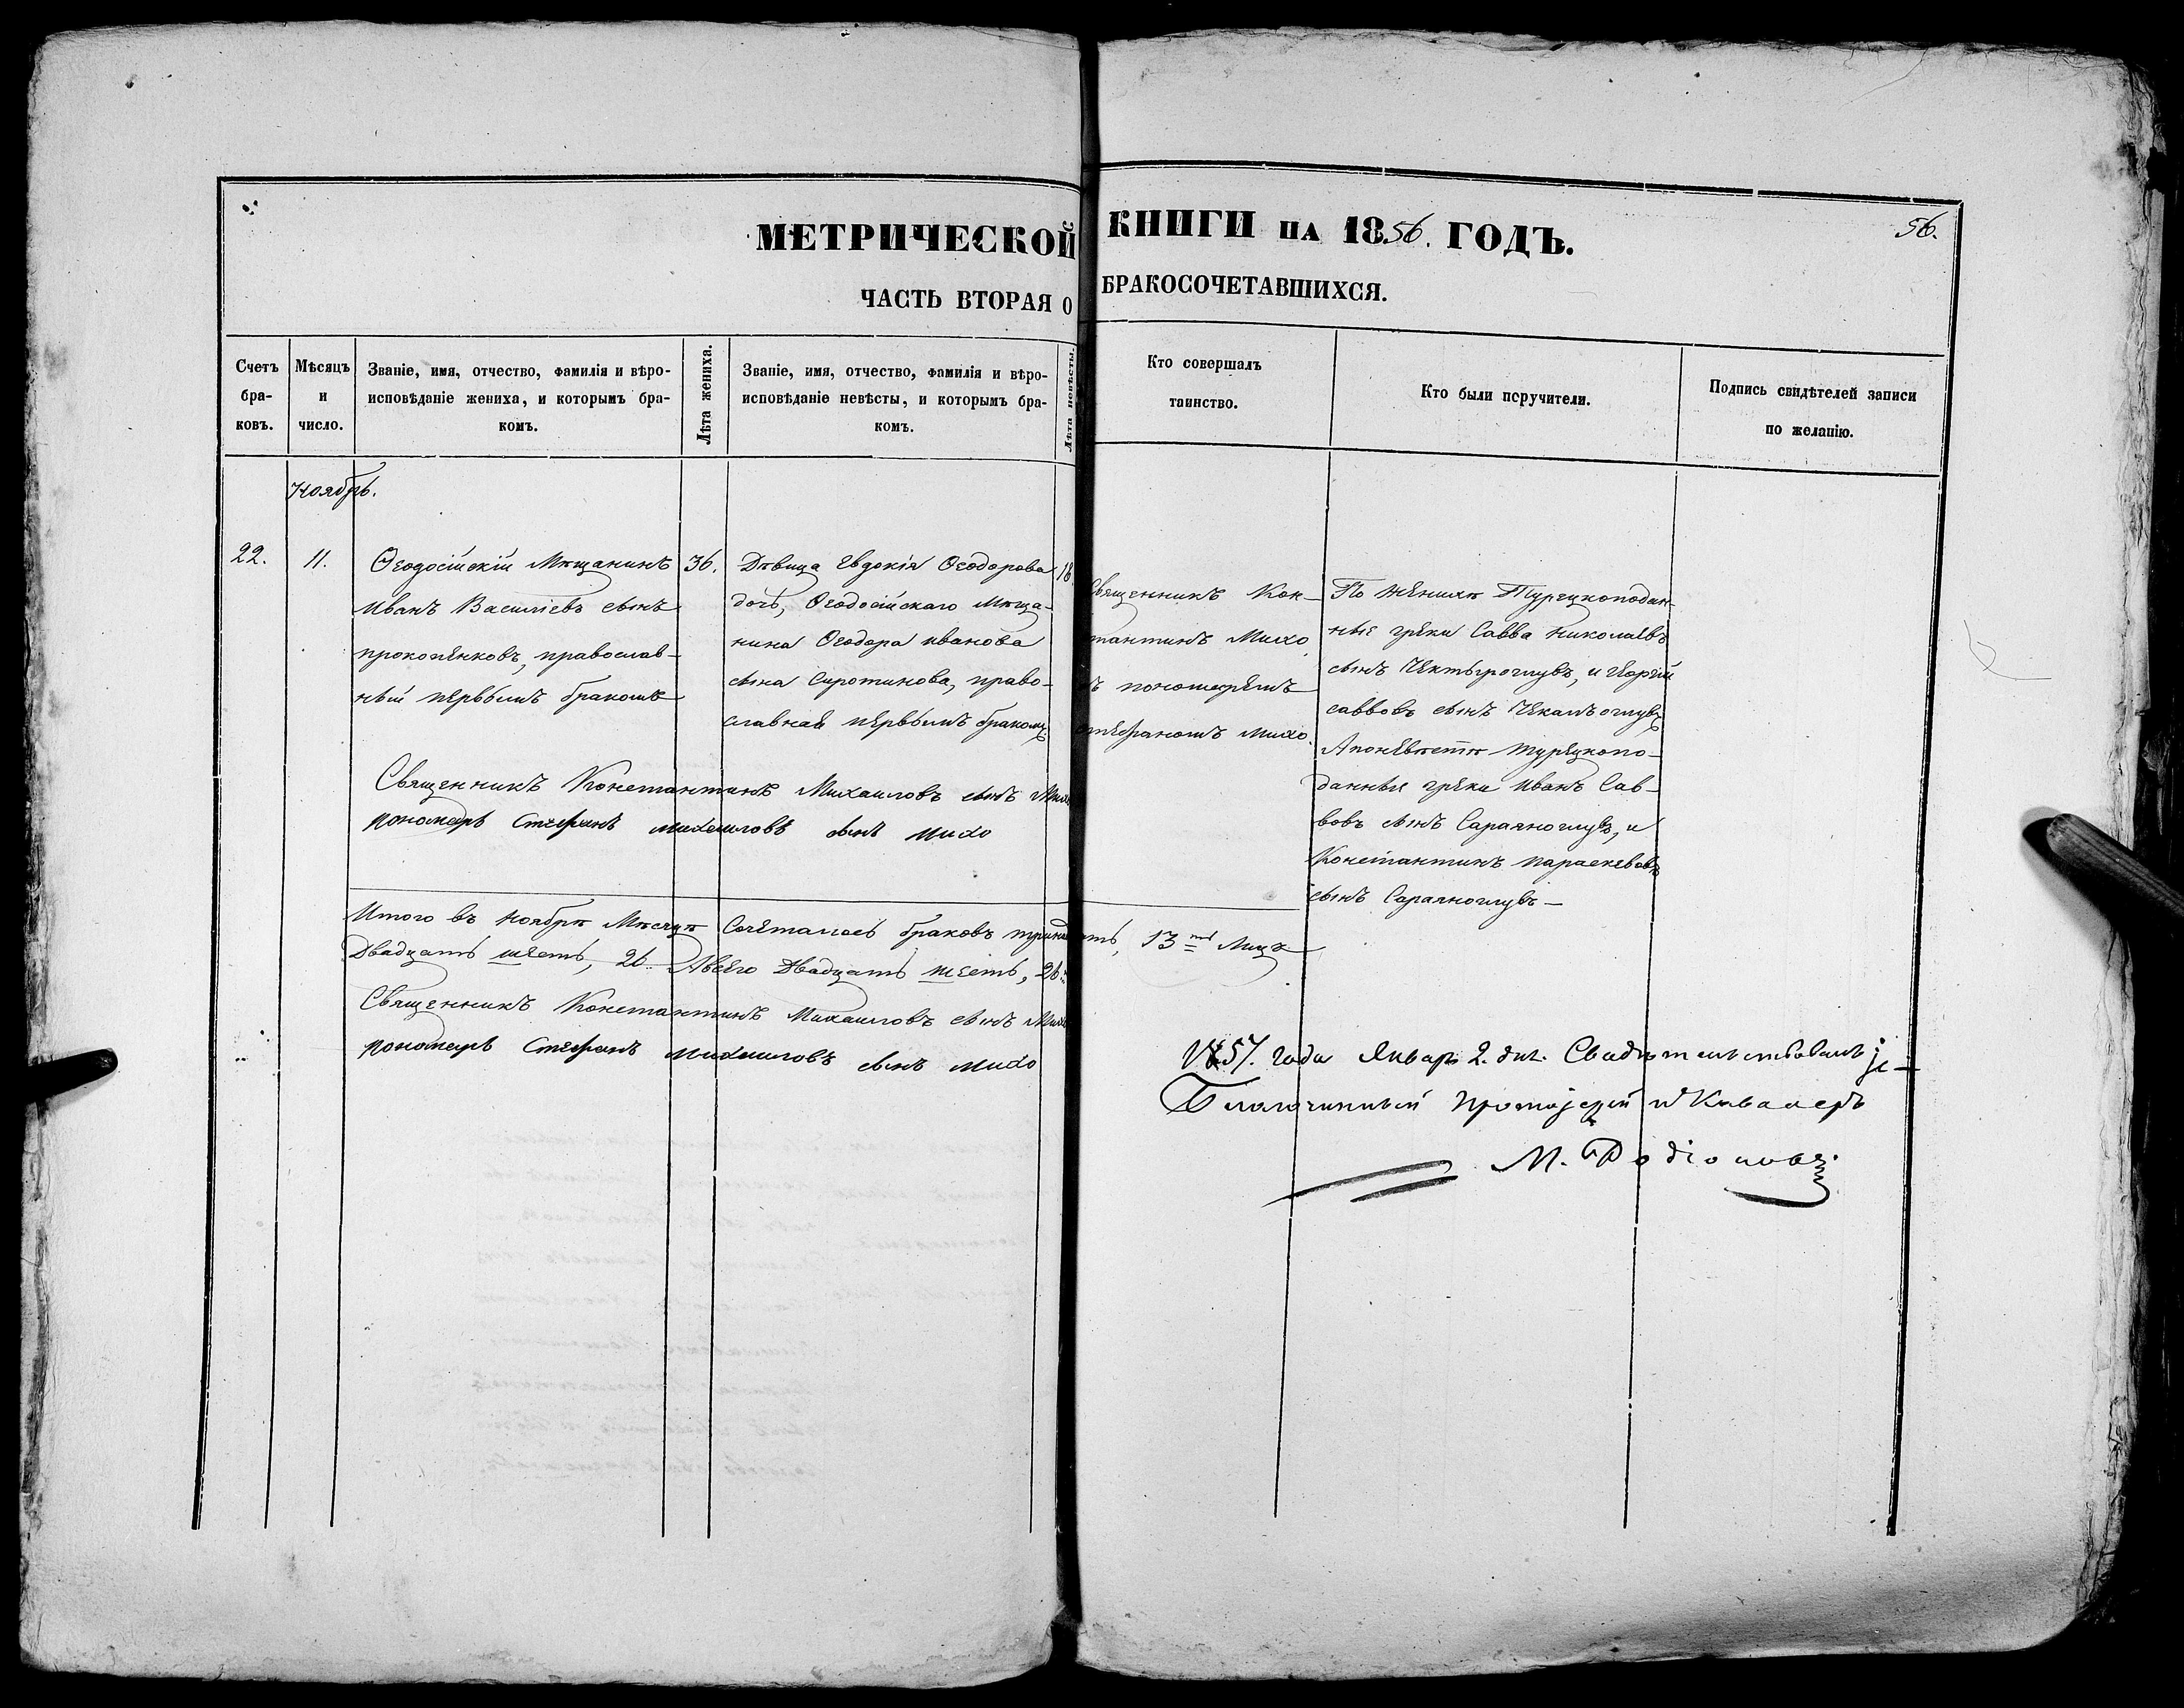 МЕТРИЧЕСКОЙ КНИГИ НА 1856. ГОДЪ.
56.
ЧАСТЬ ВТОРАЯ О БРАКОСОЧЕТАВШИХСЯ.
Счетъ
бра-
ковъ.
Мѣсяцъ
и
число.
Званіе, имя, отчество, фамилія и вѣро-
исповѣданіе жениха, и которымъ бра-
комъ.
Лѣта жениха.
Званіе, имя, отчество, фамилія и вѣро-
исповѣданіе невѣсты, и которымъ бра-
комъ.
Лѣта невѣсты.
Кто совершалъ
таинство.
Кто были поручители.
Подпись свидѣтелей записи
по желанію.
Ноябрь.
22.
11.
Ѳеодосійскій Мѣщанинъ
Иванъ Василіевъ сынъ
прокопенковъ, православ-
ный первымъ бракомъ
36.
Дѣвица Евдокія Ѳеодорова
дочь, Ѳеодосійскаго Мѣща-
нина Ѳеодора иванова
сына Сиротинова, право-
славная первымъ бракомъ
18.
Священникъ Кон-
тантинъ Михо
ъ пономаремъ
стефаномъ михо.
По женихѣ Турецкоподан-
ные греки Савва николаевъ
сынъ Чектыроглувъ, и георгій
саввовъ сынъ Чекалъоглувъ
А поневѣстѣ турецкопо-
данныя греки Иванъ Сав-
вовъ сынъ Сараяноглувъ, и
Константинъ параскевовъ
сынъ Сараяноглувъ —
Священникъ Константинъ Михаиловъ сынъ Михо
пономарь Стефанъ михаиловъ сынъ михо
Итого въ ноябрѣ Мѣсяцѣ Сочеталось браковъ тринадцать, 13 ть Лицъ
Двадцать шесть, 26. Авсего Двадцать шесть, 26.
Священникъ Константинъ Михаиловъ сынъ Михо
пономарь Стефанъ михаиловъ сынъ михо
1857. года Января 2. дня. Свидѣтельствовалъ:
Благочинный Протоіерей и Кавалеръ
М. Родіоновъ